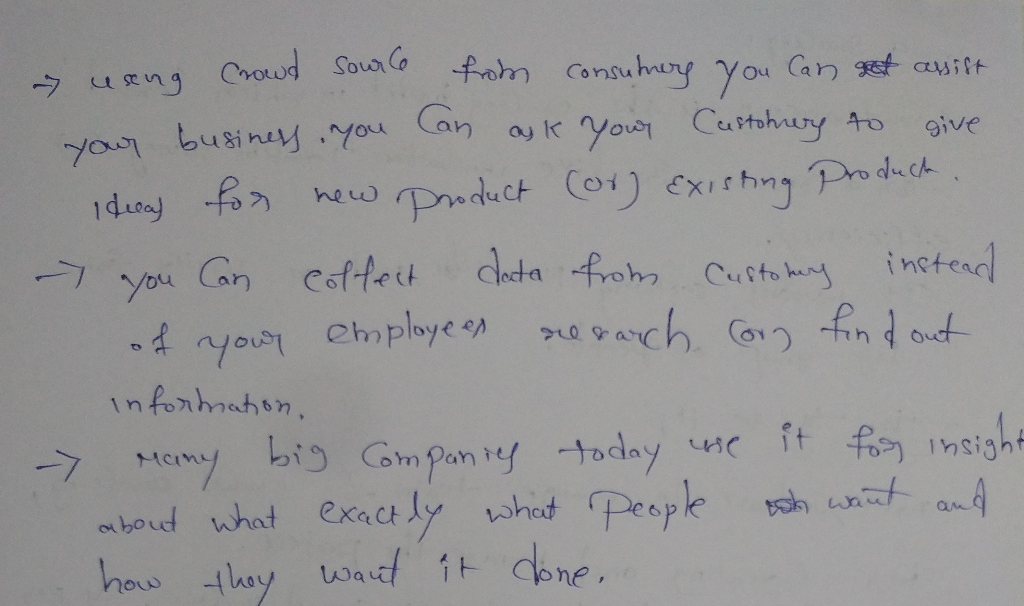 → using Crowd source from consumers you can assist
your business. you can ask your Customers to give
ideas for new product (or) Existing Product.
→ you can collect data from Customers instead
of your employees research (or) find out
information.
→ Many big Companies today use it for insight
about what exactly what People want and
how they want it done.